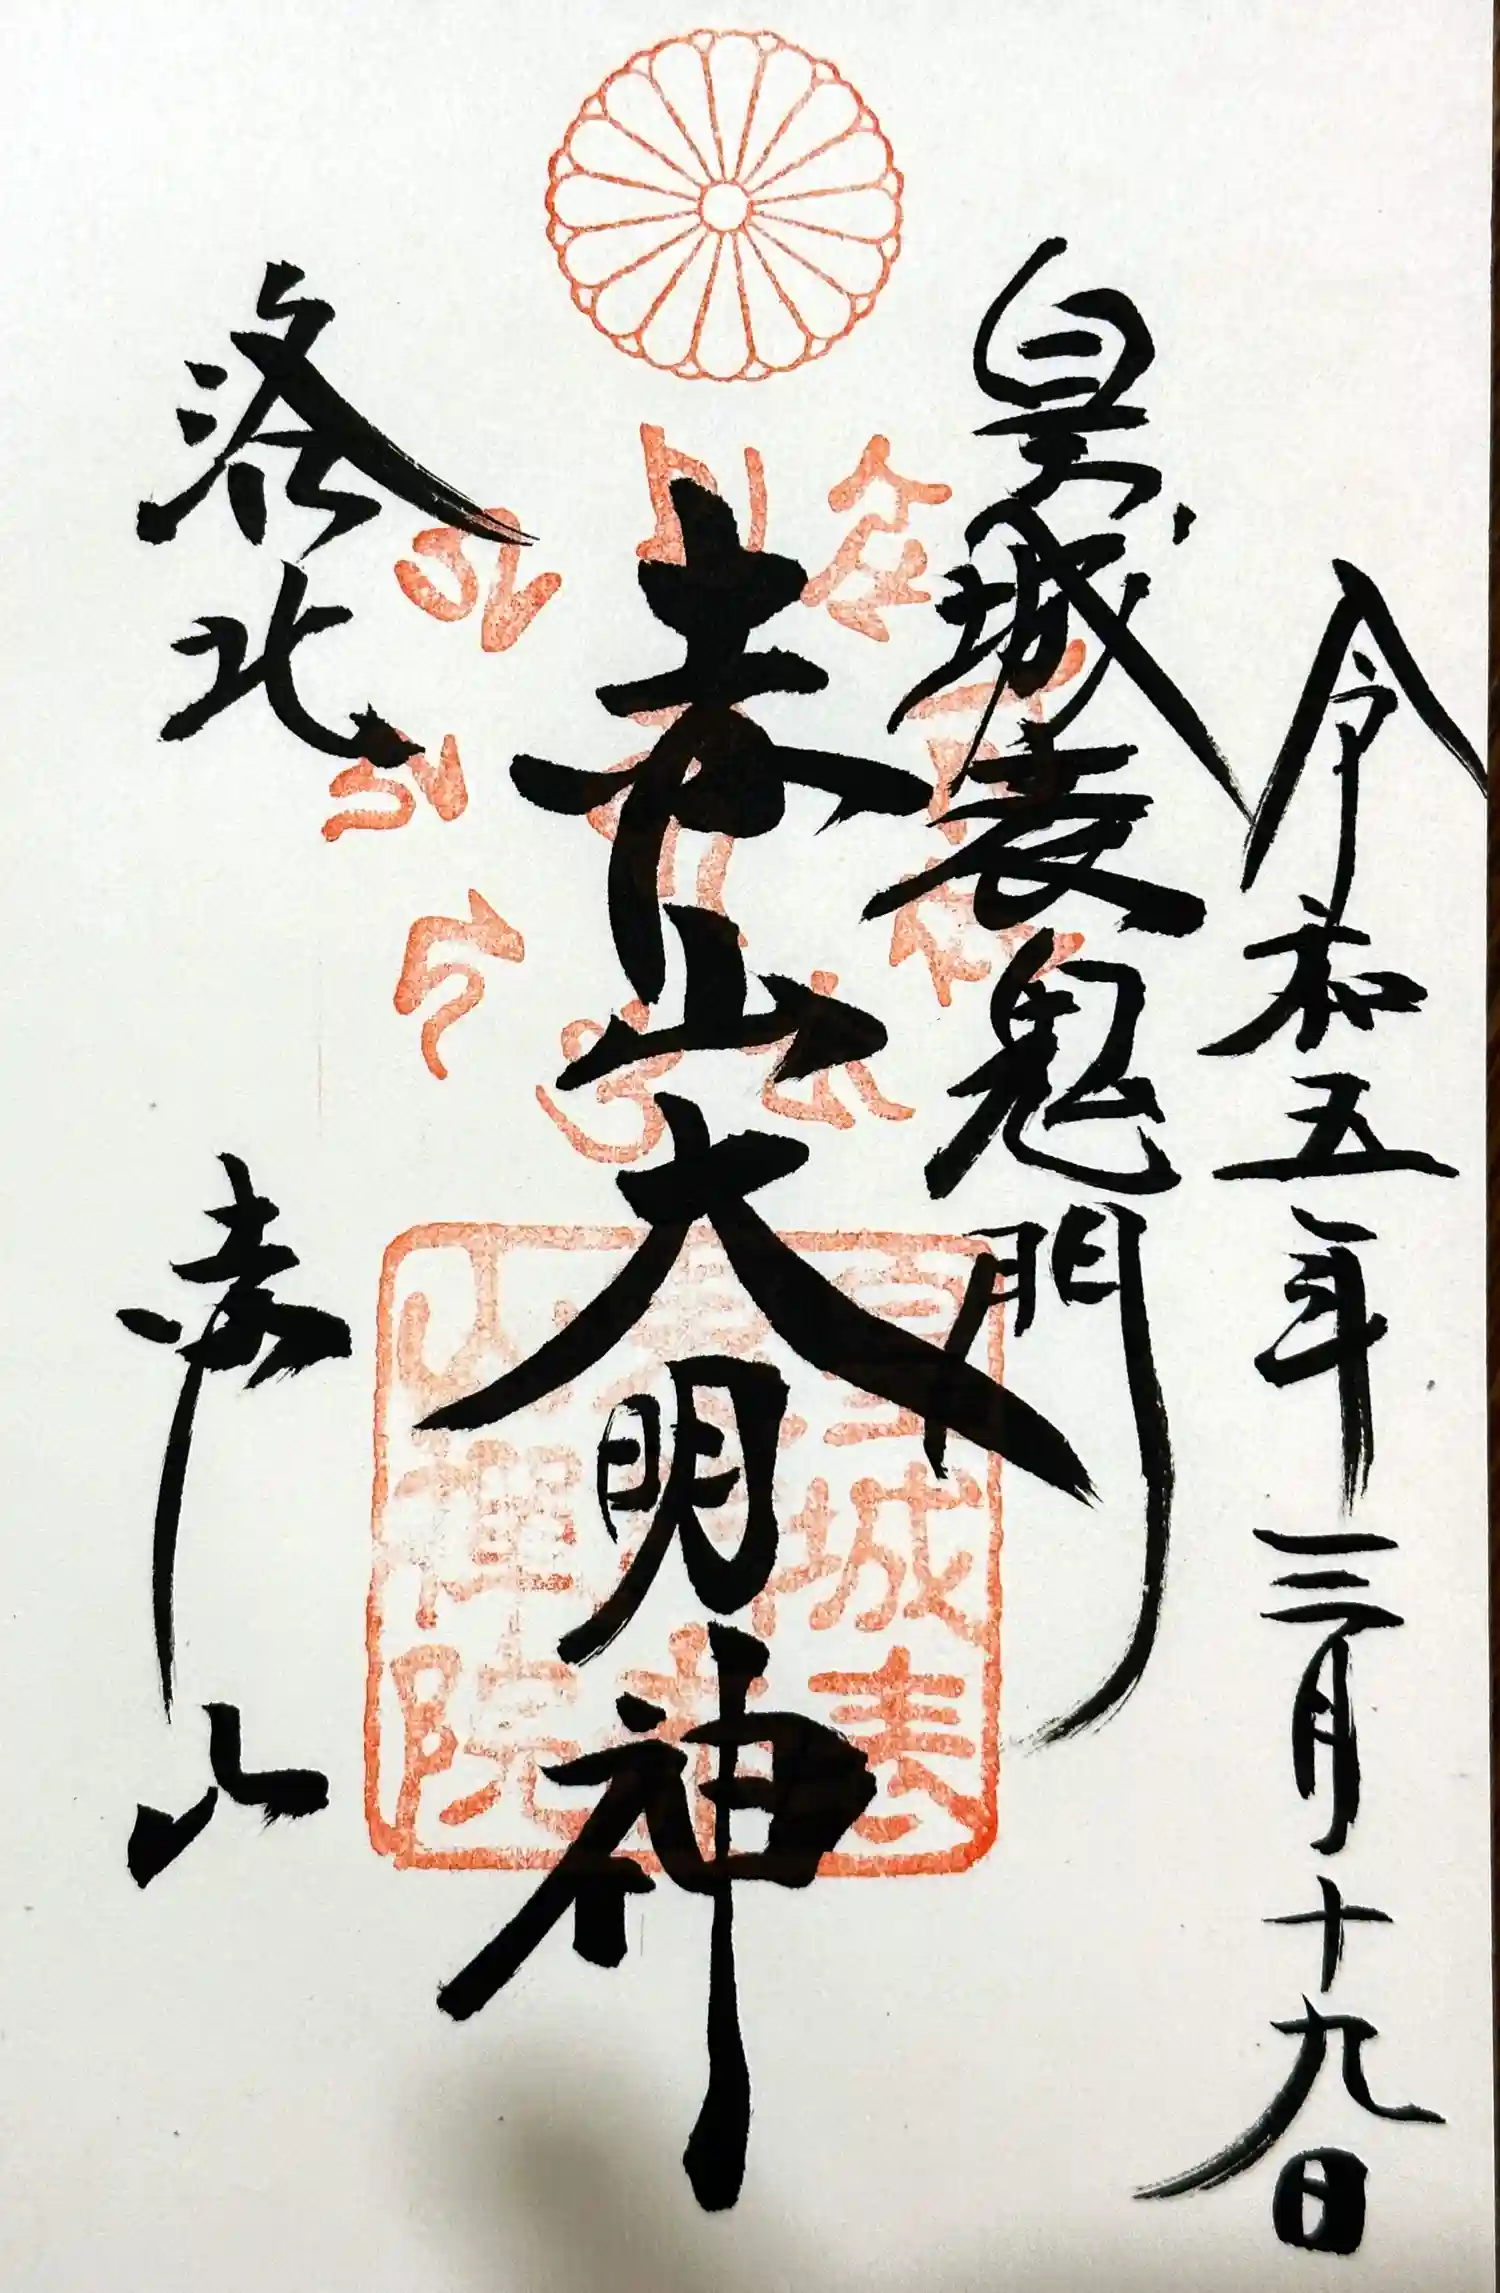 令和五年三月十九日
皇城表鬼門
赤山大明神
洛北 赤山
皇城表
鬼門赤
山禪院